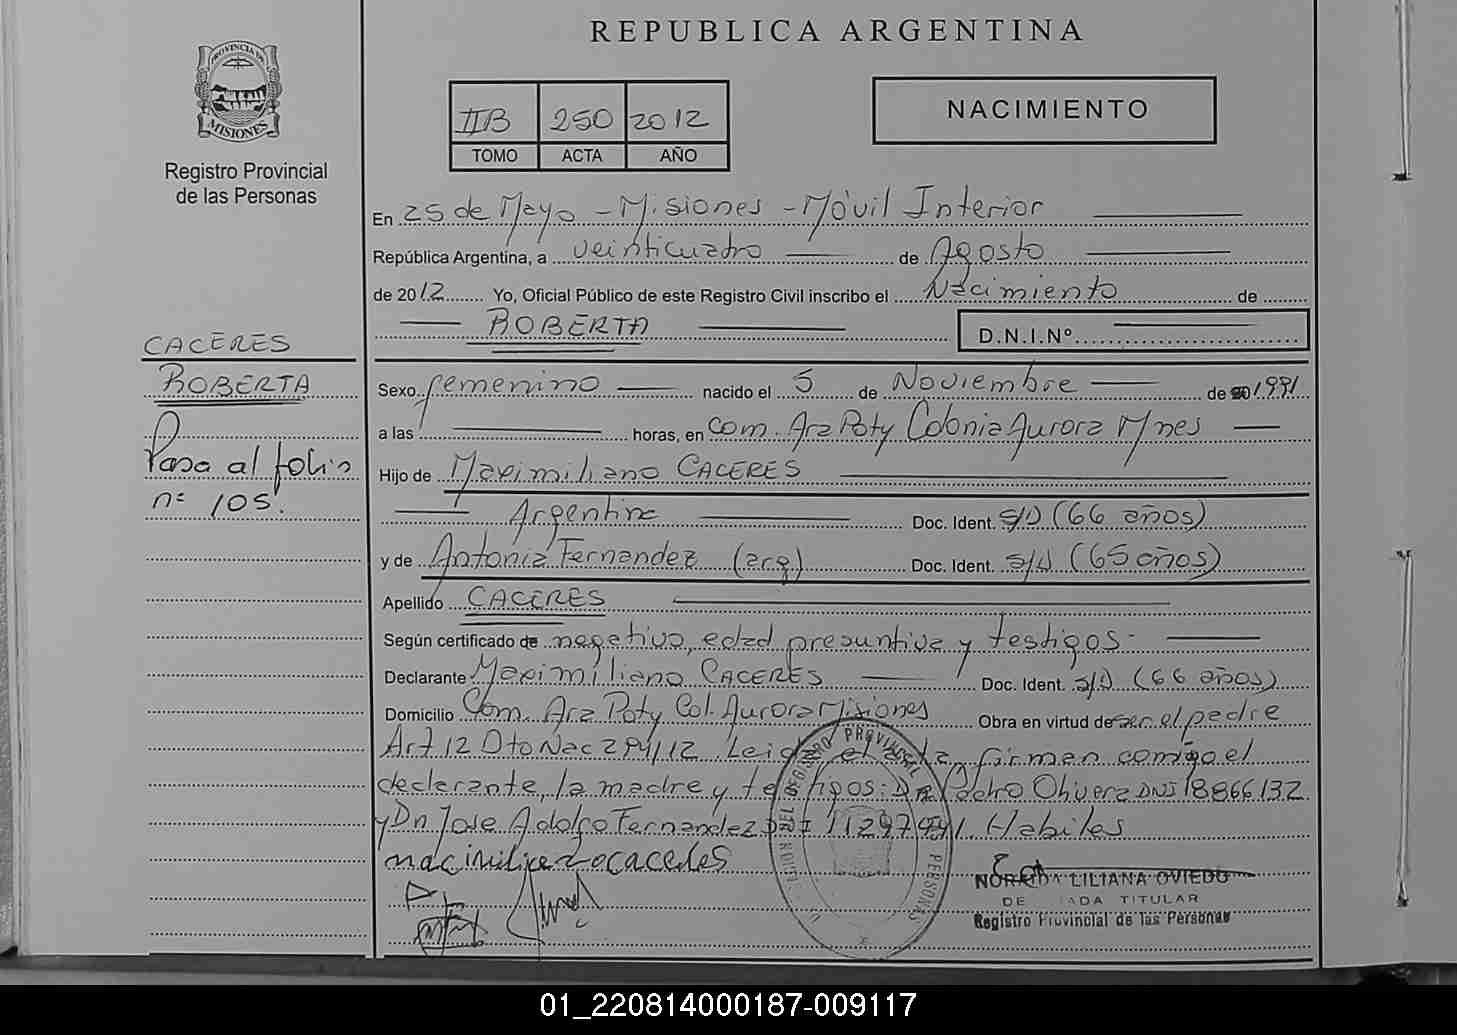 REPUBLICA ARGENTINA
PROVINCIA DE
MISIONES
Registro Provincial
de las Personas
IIB 250 2012
TOMO ACTA AÑO
NACIMIENTO
En 25 de Mayo - Misiones - Móvil Interior
República Argentina, a veinticuatro de Agosto
de 2012 Yo, Oficial Público de este Registro Civil inscribo el Nacimiento de
ROBERTA D.N.I.Nº
CACERES
ROBERTA
Pasa al folio
nº 105.
Sexo femenino nacido el 5 de Noviembre de 1991
a las horas, en Com. Ara Poty Colonia Aurora Mnes
Hijo de Maximiliano CACERES
Argentina Doc. Ident. S/D (66 años)
y de Antonia Fernandez (arg) Doc. Ident. S/D (65 años)
Apellido CACERES
Según certificado de negativo, edad presuntiva y testigos.
Declarante Maximiliano CACERES Doc. Ident. S/D (66 años)
Domicilio Com. Ara Poty Col. Aurora Misiones Obra en virtud de ser el padre
Art 12 Dto Nac 294/12. Leida el acta, firman conmigo el
declarante, la madre y testigos: Dn Pedro Olivera DNI 18866132
y Dn Jose Adolfo Fernandez DNI Habiles
NORAIDA LILIANA OVIEDO
TITULAR
Registro Provincial de las Personas
REGISTRO PROVINCIAL
PERSONAS
01_220814000187-009117